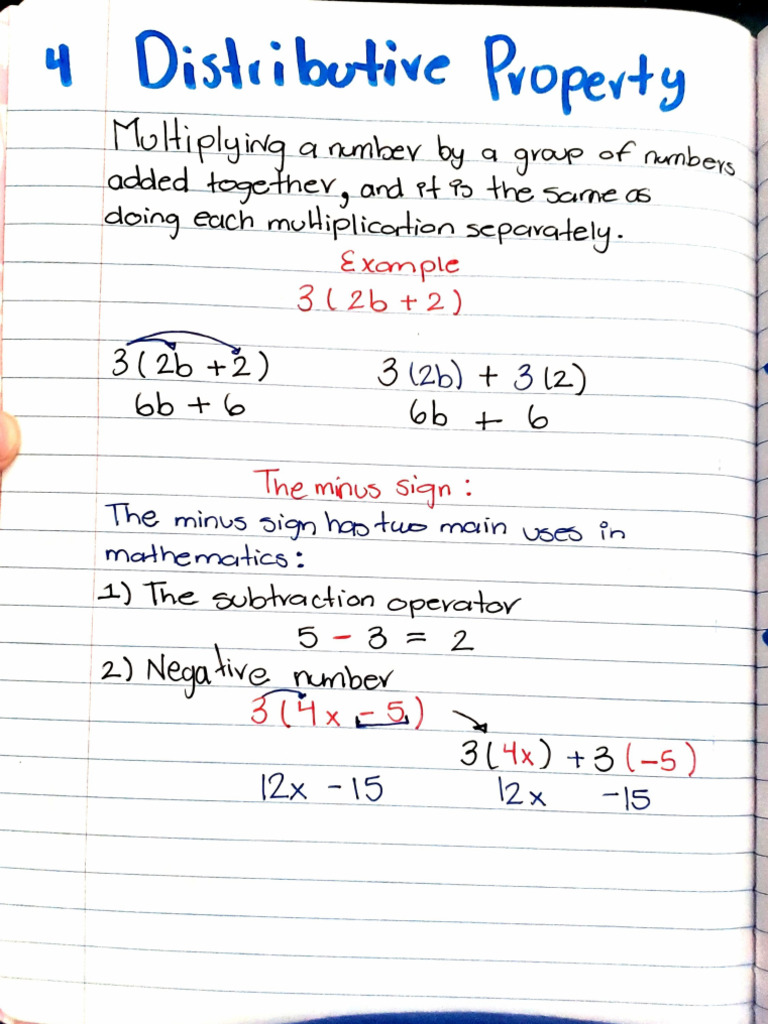 4 Distributive Property
Multiplying a number by a group of numbers
added together, and it is the same as
doing each multiplication separately.
Example
3(2b + 2)
3(2b + 2) 3(2b) + 3(2)
6b + 6 6b + 6
The minus sign:
The minus sign has two main uses in
mathematics:
1) The subtraction operator
5 - 3 = 2
2) Negative number
3(4x - 5)
3(4x) + 3(-5)
12x - 15 12x -15